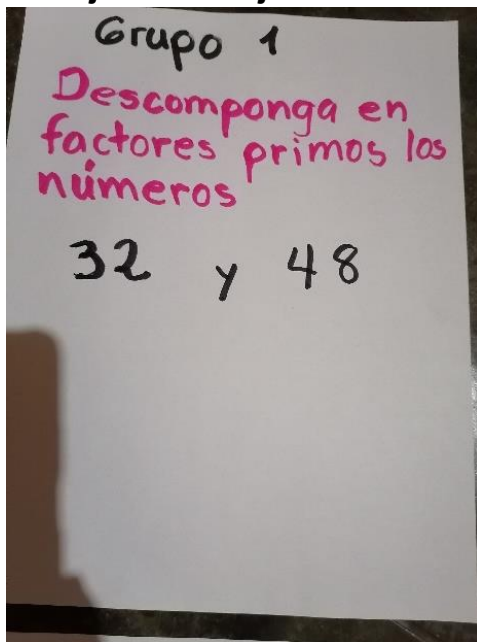 Grupo 1
Descomponga en
factores primos los
números
32 y 48